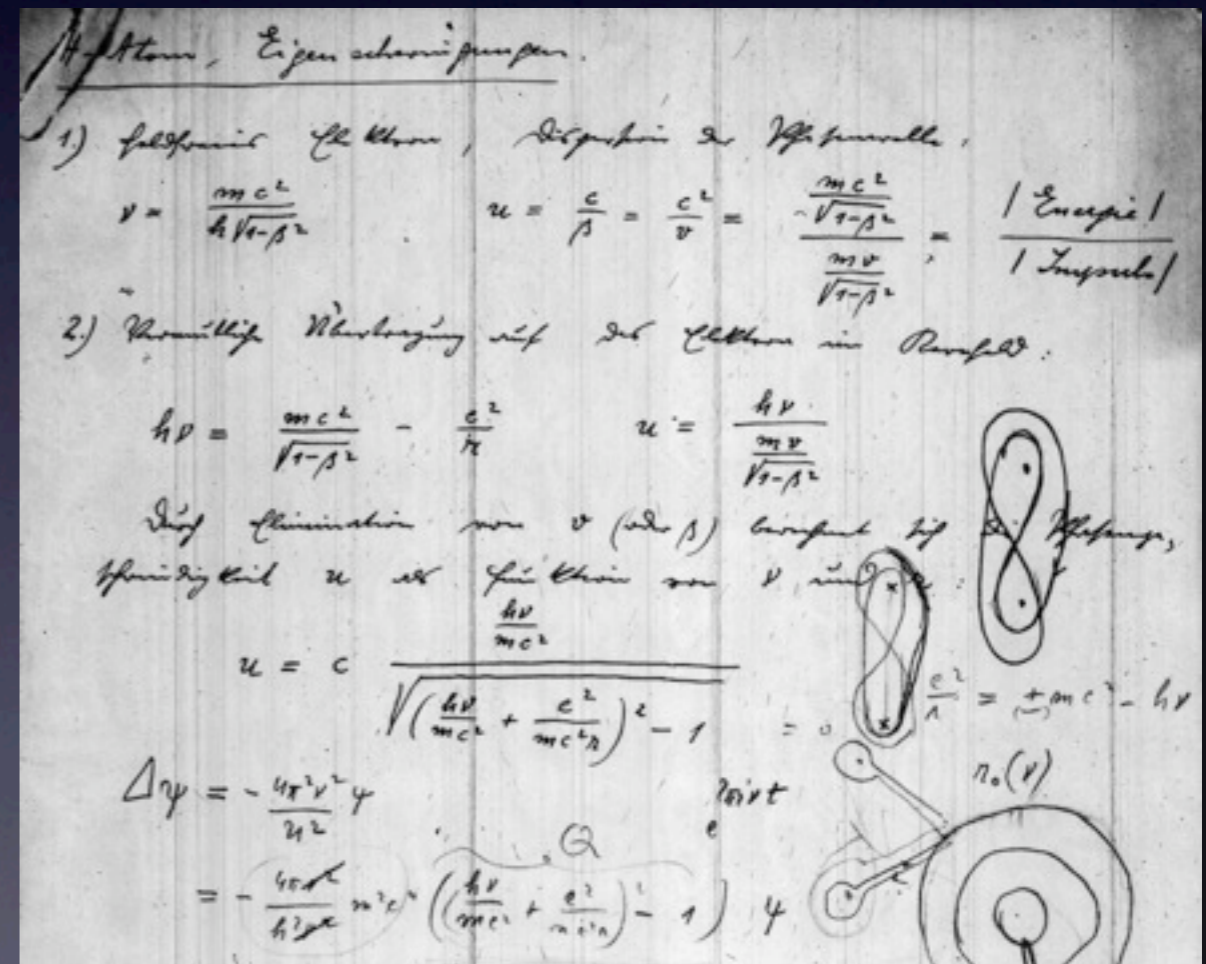 H-Atom, Eigenschwingungen.
1.) Feldfreies Elektron, Dispersion der Phasenwelle.
ν = mc²/(h√(1-β²))    u = c/β = c²/v = (mc²/√(1-β²))/(mv/√(1-β²)) = |Energie|/|Impuls|
2.) Vermutliche Übertragung auf das Elektron im Kernfeld:
hν = mc²/√(1-β²) - e²/r    u = hν/(mv/√(1-β²))
Durch Elimination von v (oder β) berechnet sich die Phasenge-
schwindigkeit u als Funktion von ν und
u = c (hν/mc²)/√((hν/mc² + e²/mc²r)² - 1) = 0    e²/r = ±mc² - hν
r₀(ν)
Δψ = - 4π²ν²/u² ψ
= - 4πν²/h²ν² m²c² ((hν/mc² + e²/mc²r)² - 1) ψ
Q